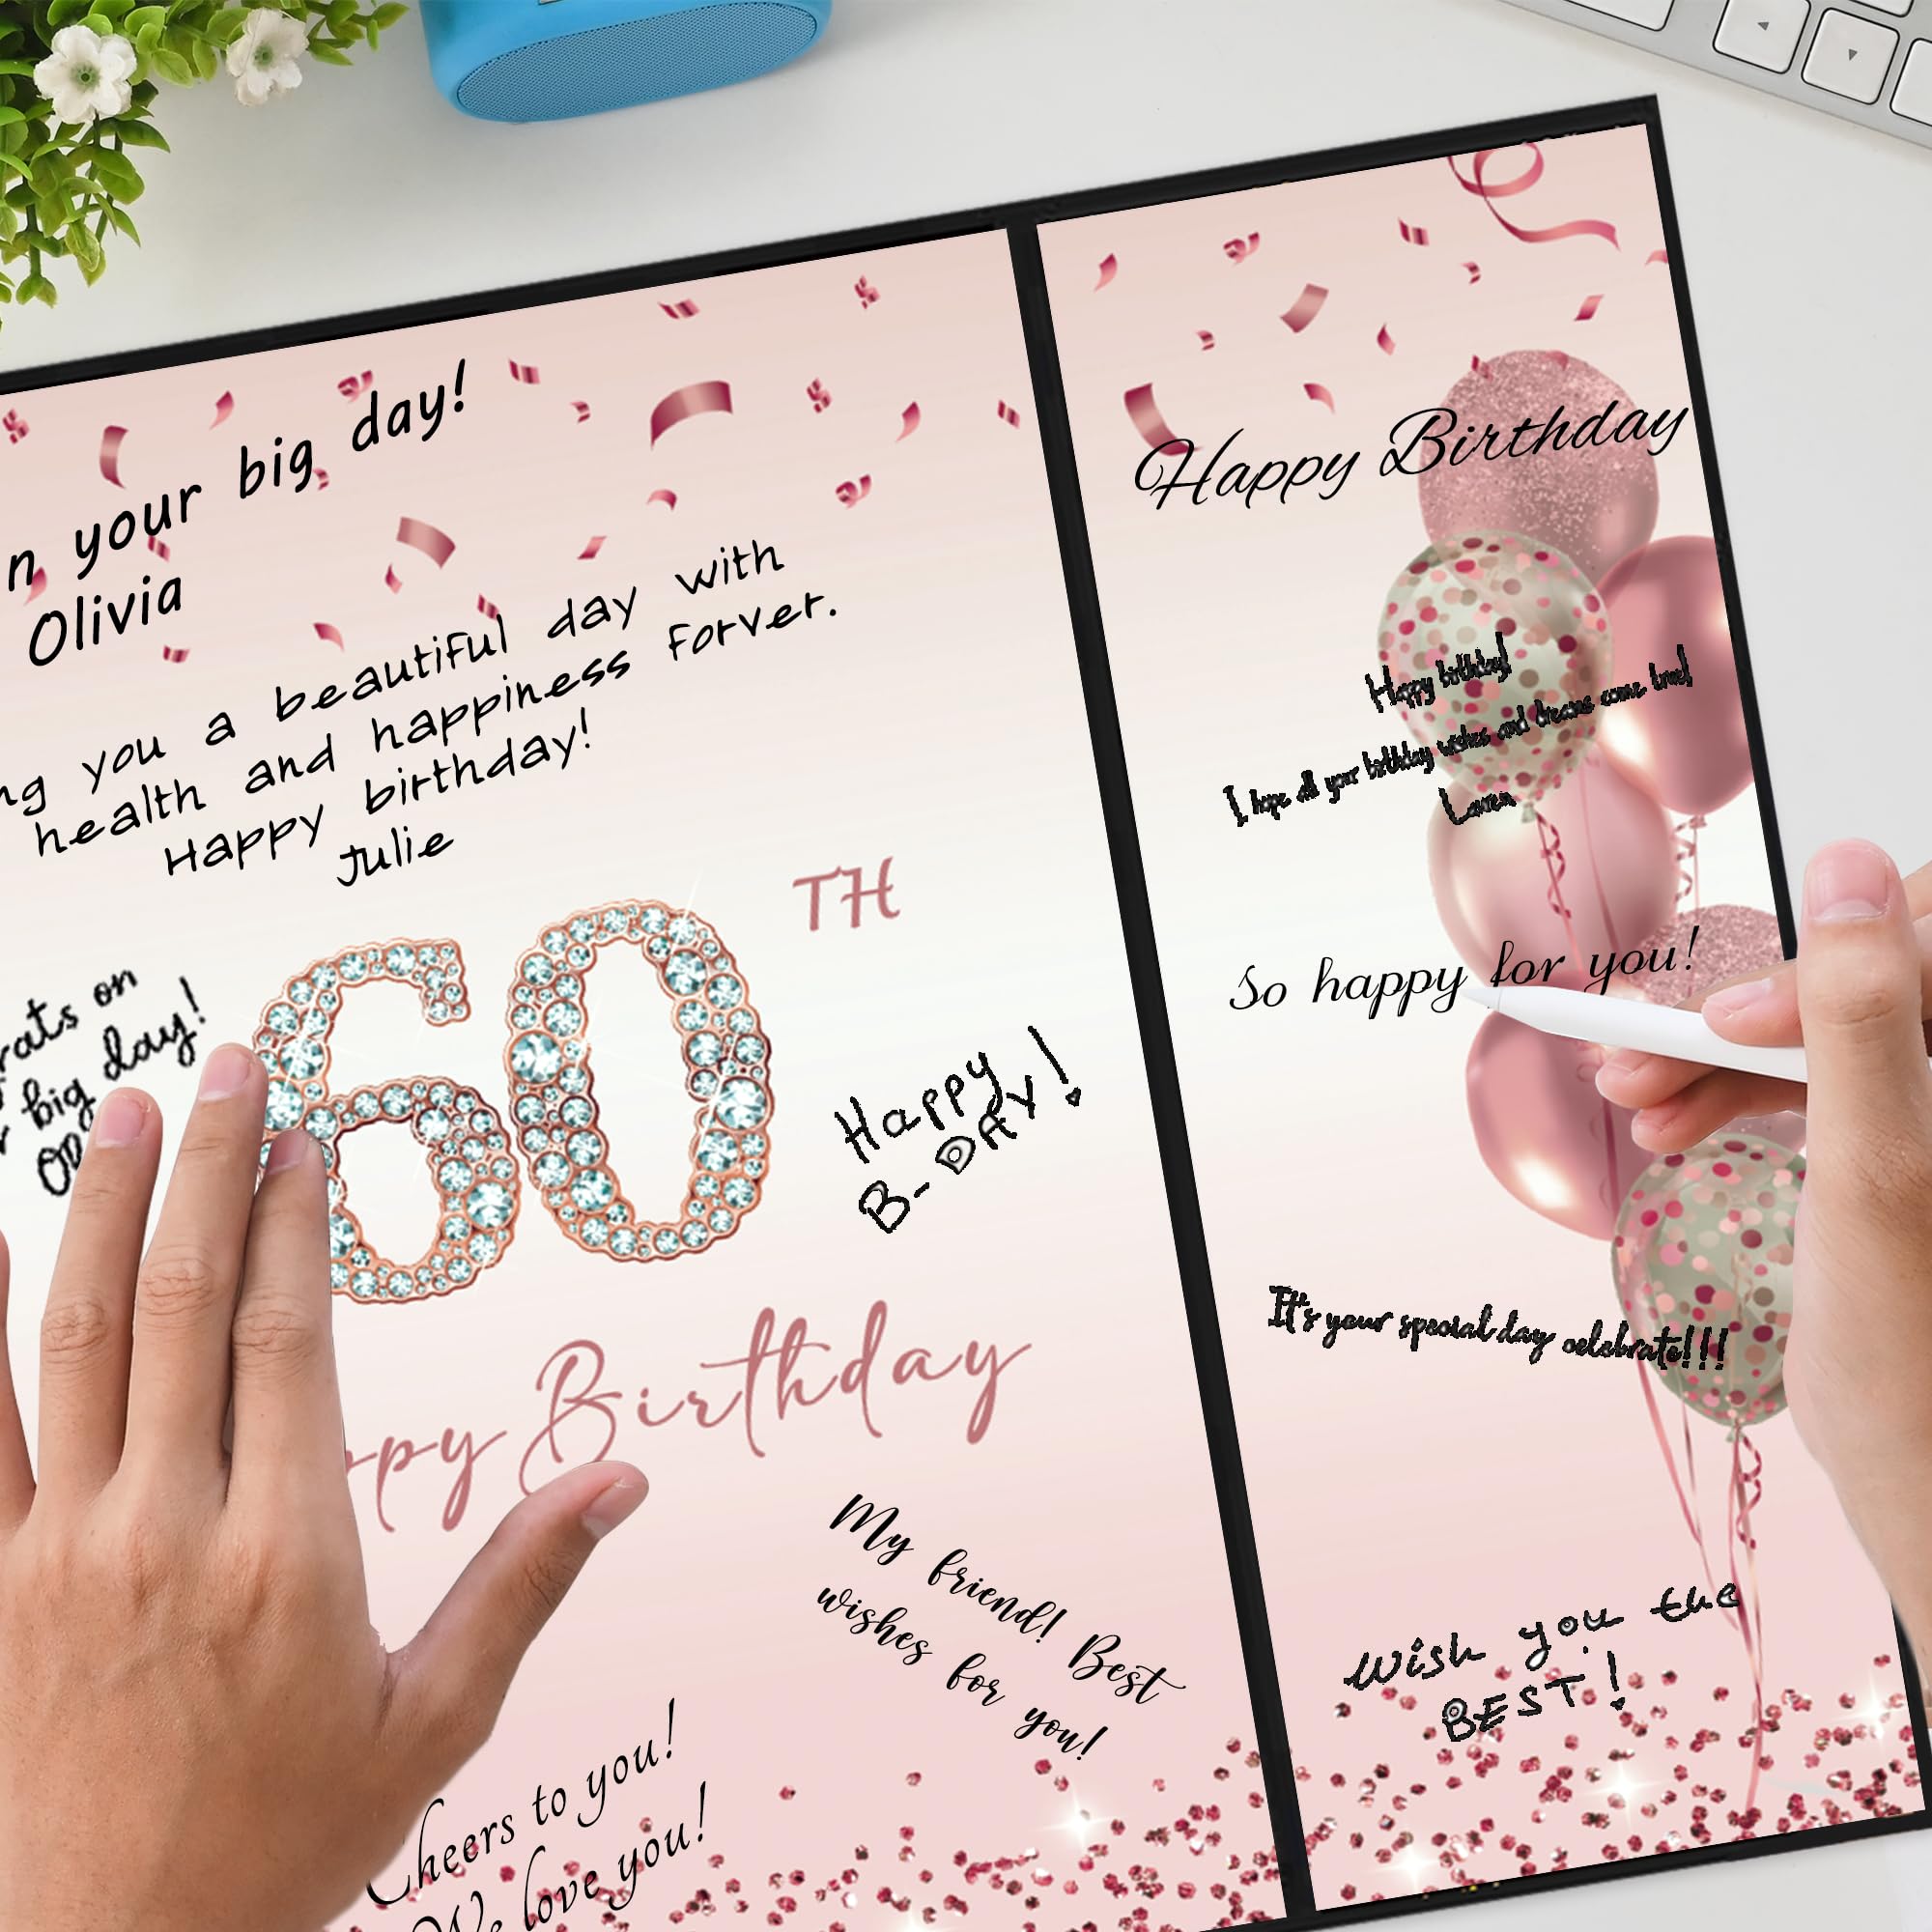 n your big day!
Olivia
ng you a beautiful day with
health and happiness forver.
Happy birthday!
Julie
60 TH
rats on
big day!
Happy
B-DAY!
ppy Birthday
My friend! Best
wishes for you!
Cheers to you!
We love you!
Happy Birthday
Happy birthday!
I hope all your birthday wishes and dreams come true!
Lauren
So happy for you!
It's your special day celebrate!!!
wish you the
BEST!